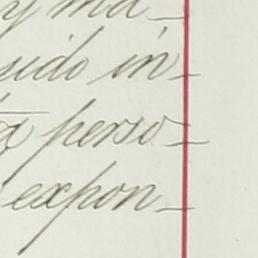 y ma-
sido in-
ta perso-
expon-